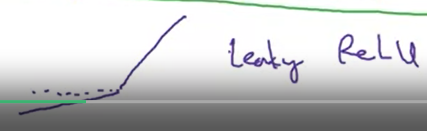 Leaky ReLU